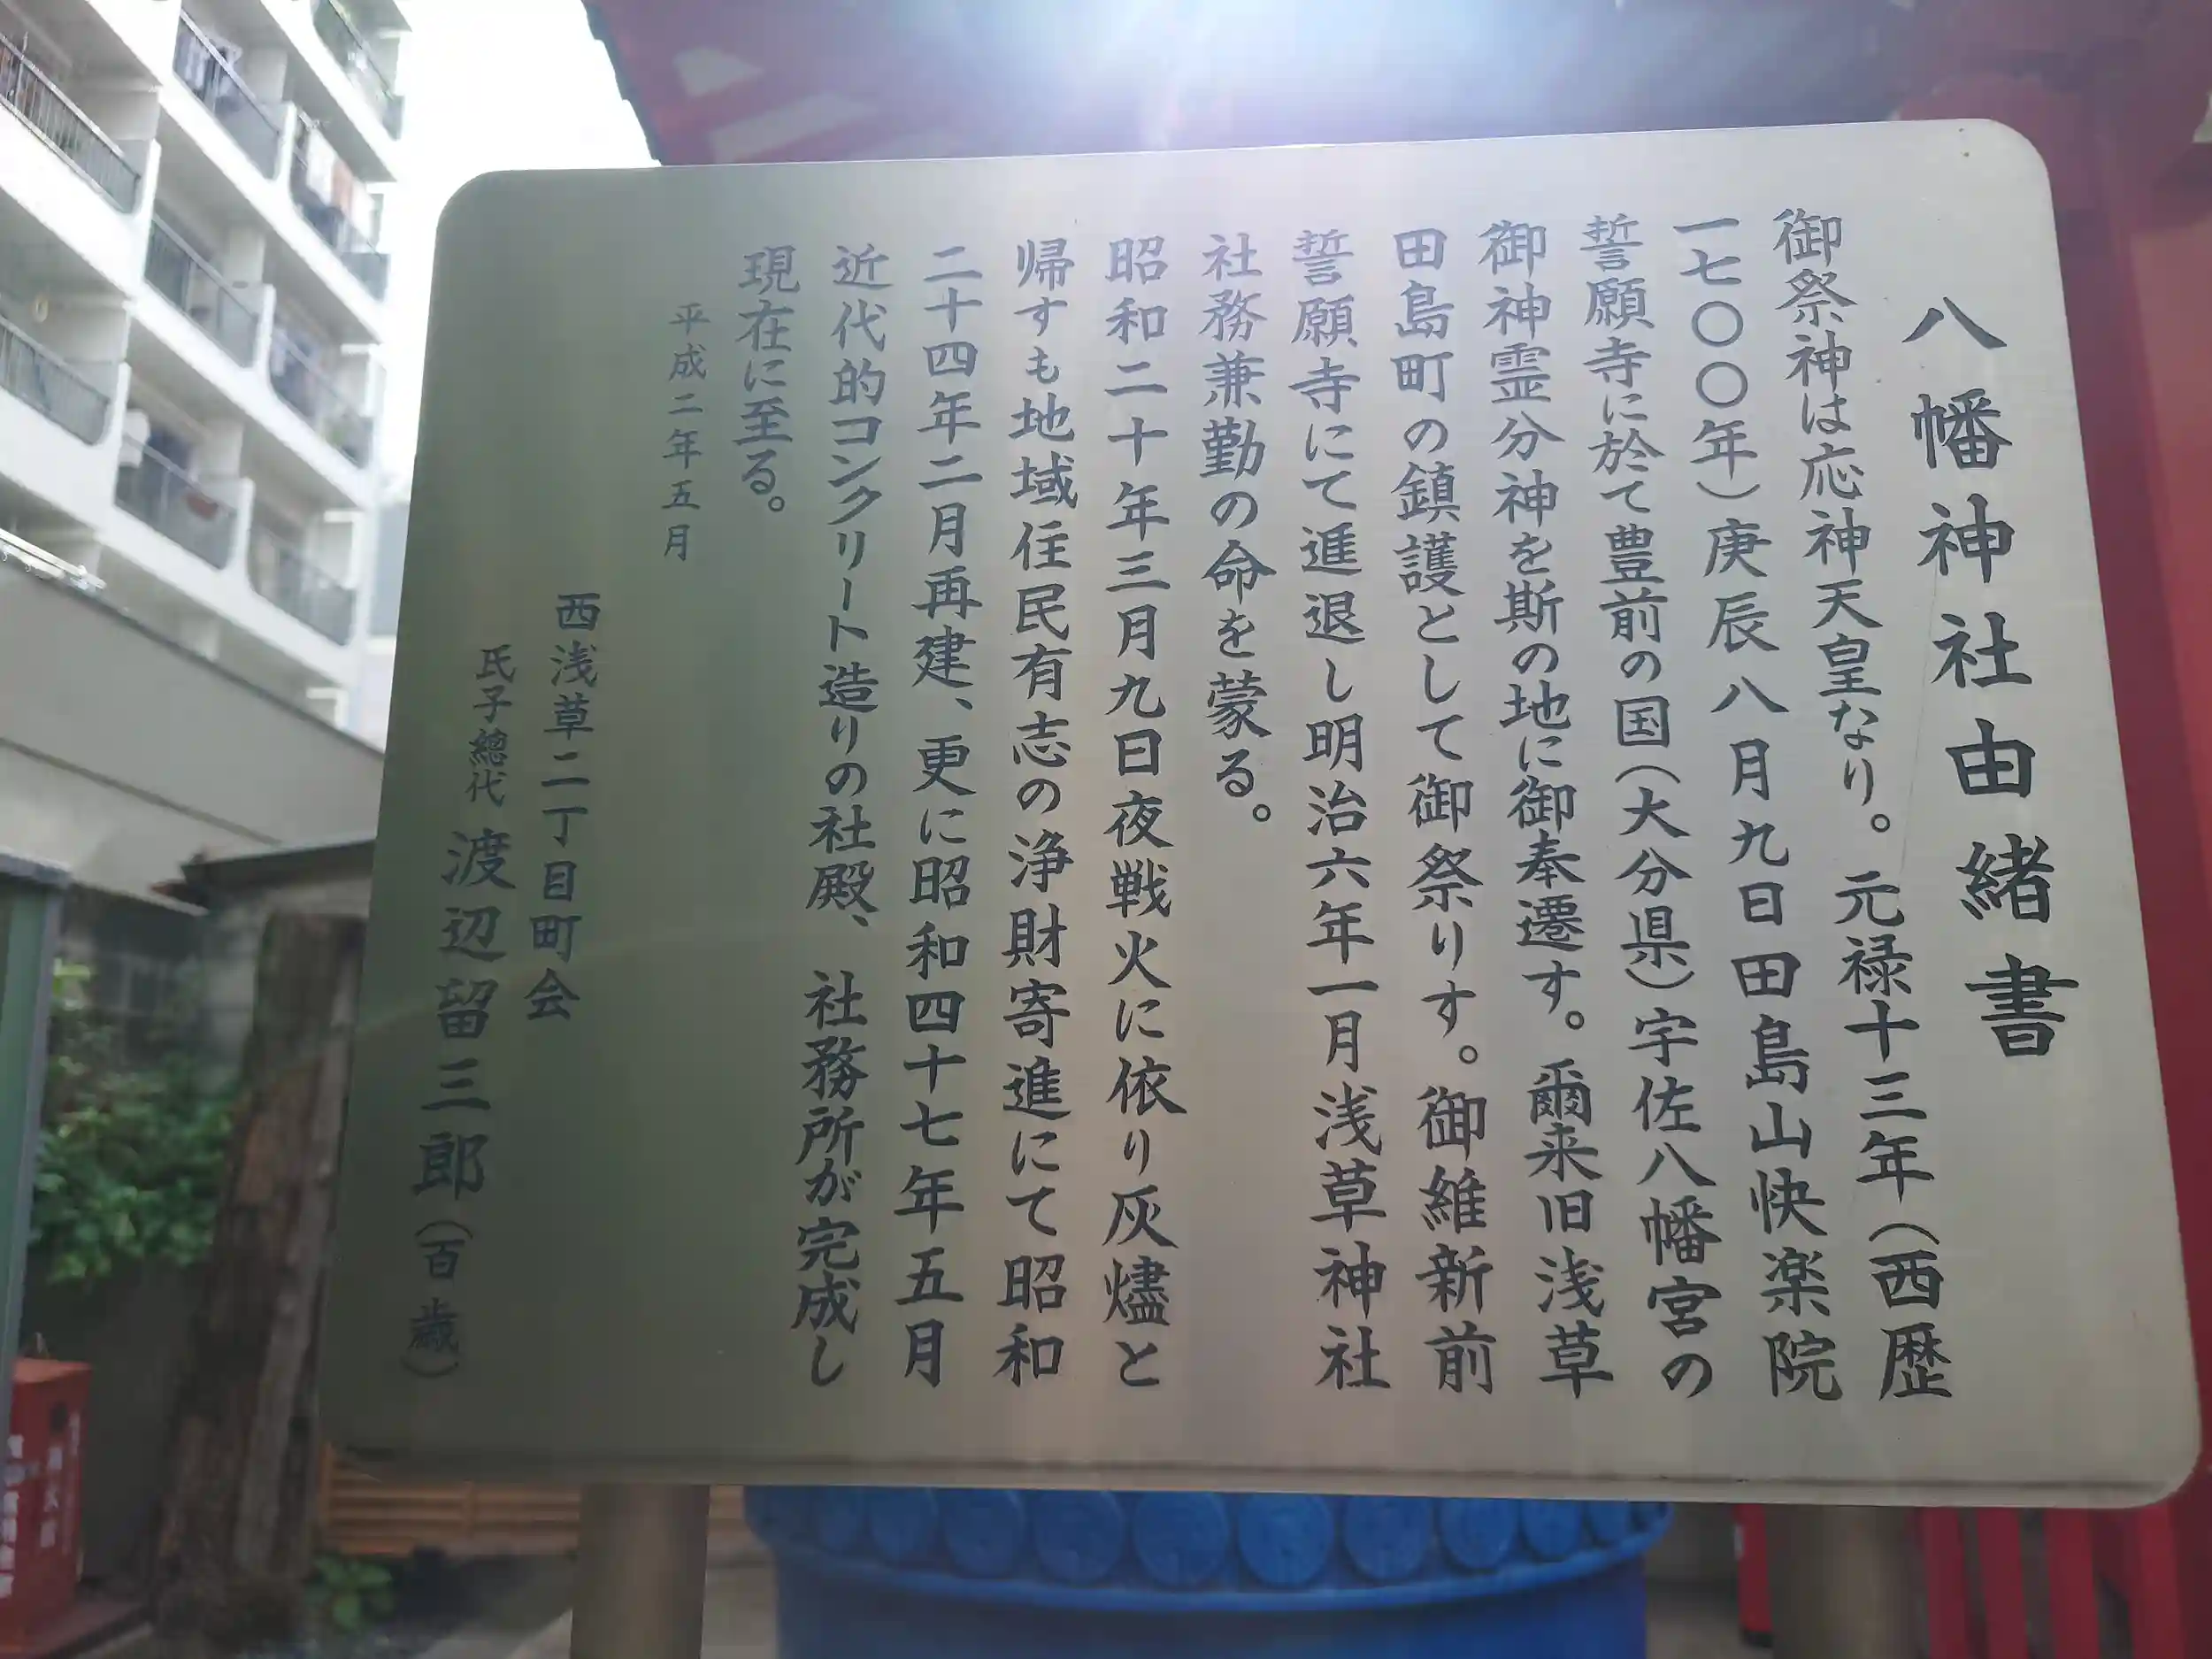 八幡神社由緒書
御祭神は応神天皇なり。元禄十三年(西歴
一七〇〇年)庚辰八月九日田島山快楽院
誓願寺に於て豊前の国(大分県)宇佐八幡宮の
御神霊分神を斯の地に御奉遷す。爾来旧浅草
田島町の鎮護として御祭りす。御維新前
誓願寺にて進退し明治六年一月浅草神社
社務兼勤の命を蒙る。
昭和二十年三月九日夜戦火に依り灰燼と
帰すも地域住民有志の浄財寄進にて昭和
二十四年二月再建、更に昭和四十七年五月
近代的コンクリート造りの社殿、社務所が完成し
現在に至る。
平成二年五月
西浅草二丁目町会
氏子總代 渡辺留三郎(百歳)